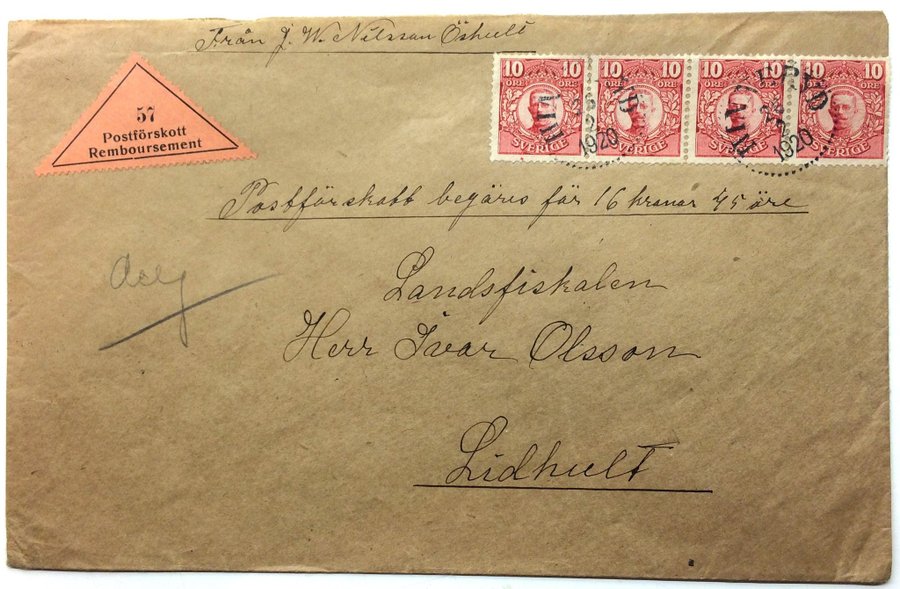 Från J. W. Nilsson Öshult
10 ÖRE 10 SVERIGE
10 ÖRE 10 SVERIGE
10 ÖRE 10 SVERIGE
10 ÖRE 10 SVERIGE
1920
1920
57
Postförskott
Remboursement
Postförskott begäres för 16 kronor 45 öre
Landsfiskalen
Herr Ivar Olsson
Lidhult